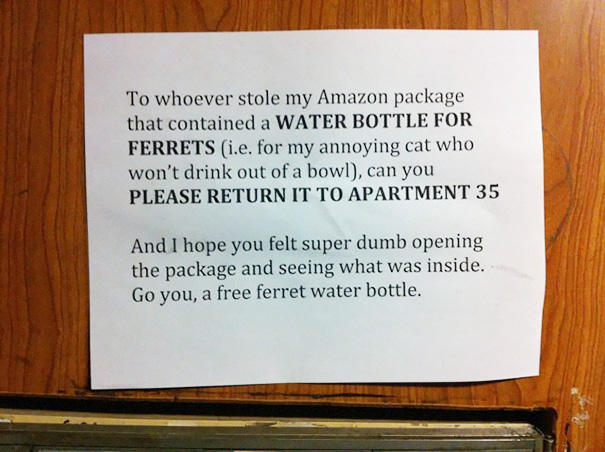 To whoever stole my Amazon package
that contained a WATER BOTTLE FOR
FERRETS (i.e. for my annoying cat who
won't drink out of a bowl), can you
PLEASE RETURN IT TO APARTMENT 35
And I hope you felt super dumb opening
the package and seeing what was inside.
Go you, a free ferret water bottle.